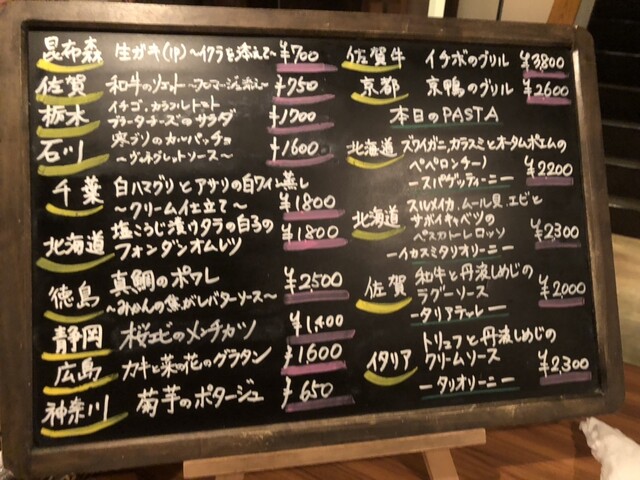 昆布森 生ガキ(1P)〜イクラを添えて〜 ¥700
佐賀 和牛のリエット 〜フロマージュ添え〜 ¥750
栃木 イチゴ、カラフルトマト
ブラータチーズのサラダ ¥1700
石川 寒ブリのカルパッチョ
〜ヴィネグレットソース〜 ¥1600
千葉 白ハマグリとアサリの白ワイン蒸し
〜クリーム仕立て〜 ¥1800
北海道 塩こうじ漬けタラの白子の
フォンダンオムレツ ¥1800
徳島 真鯛のポワレ
〜みかんの焦がしバターソース〜 ¥2500
静岡 桜エビのメンチカツ ¥1,400
広島 カキと菜の花のグラタン ¥1600
神奈川 菊芋のポタージュ ¥650
佐賀牛 イチボのグリル ¥3,800
京都 京鴨のグリル ¥2600
本日のPASTA
北海道 ズワイガニ、カラスミとオータムポエムの
ペペロンチーノ
-スパゲッティーニ- ¥2200
北海道 スルメイカ、ムール貝、エビと
サボイキャベツの
ペスカトーレロッソ
-イカスミタリオリーニ- ¥2,300
佐賀 和牛と丹波しめじの
ラグーソース
-タリアテッレ- ¥2,000
イタリア トリュフと丹波しめじの
クリームソース
-タリオリーニ- ¥2,300